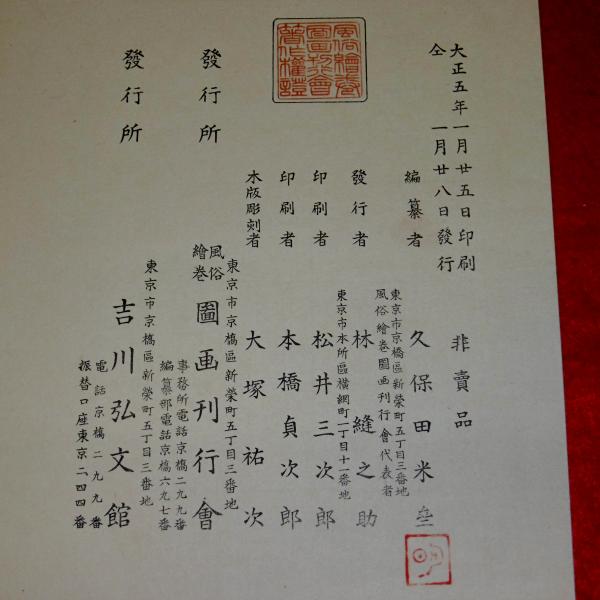 大正五年一月廿五日印刷
仝 一月廿八日發行
非賣品
編纂者 久保田米
東京市京橋區新榮町五丁目三番地
風俗繪巻圖画刊行會代表者
發行者 林縫之助
東京市本所區横網町一丁目十一番地
印刷者 松井三次郎
印刷者 本橋貞次郎
木版彫刻者 大塚祐次
東京市京橋區新榮町五丁目三番地
發行所 風俗繪巻圖画刊行會
事務所電話京橋二九九番
編纂部電話京橋六九七番
東京市京橋區新榮町五丁目三番地
發行所 吉川弘文館
電話京橋二九九番
振替口座東京二四四番
風俗繪巻
圖畫刊行會